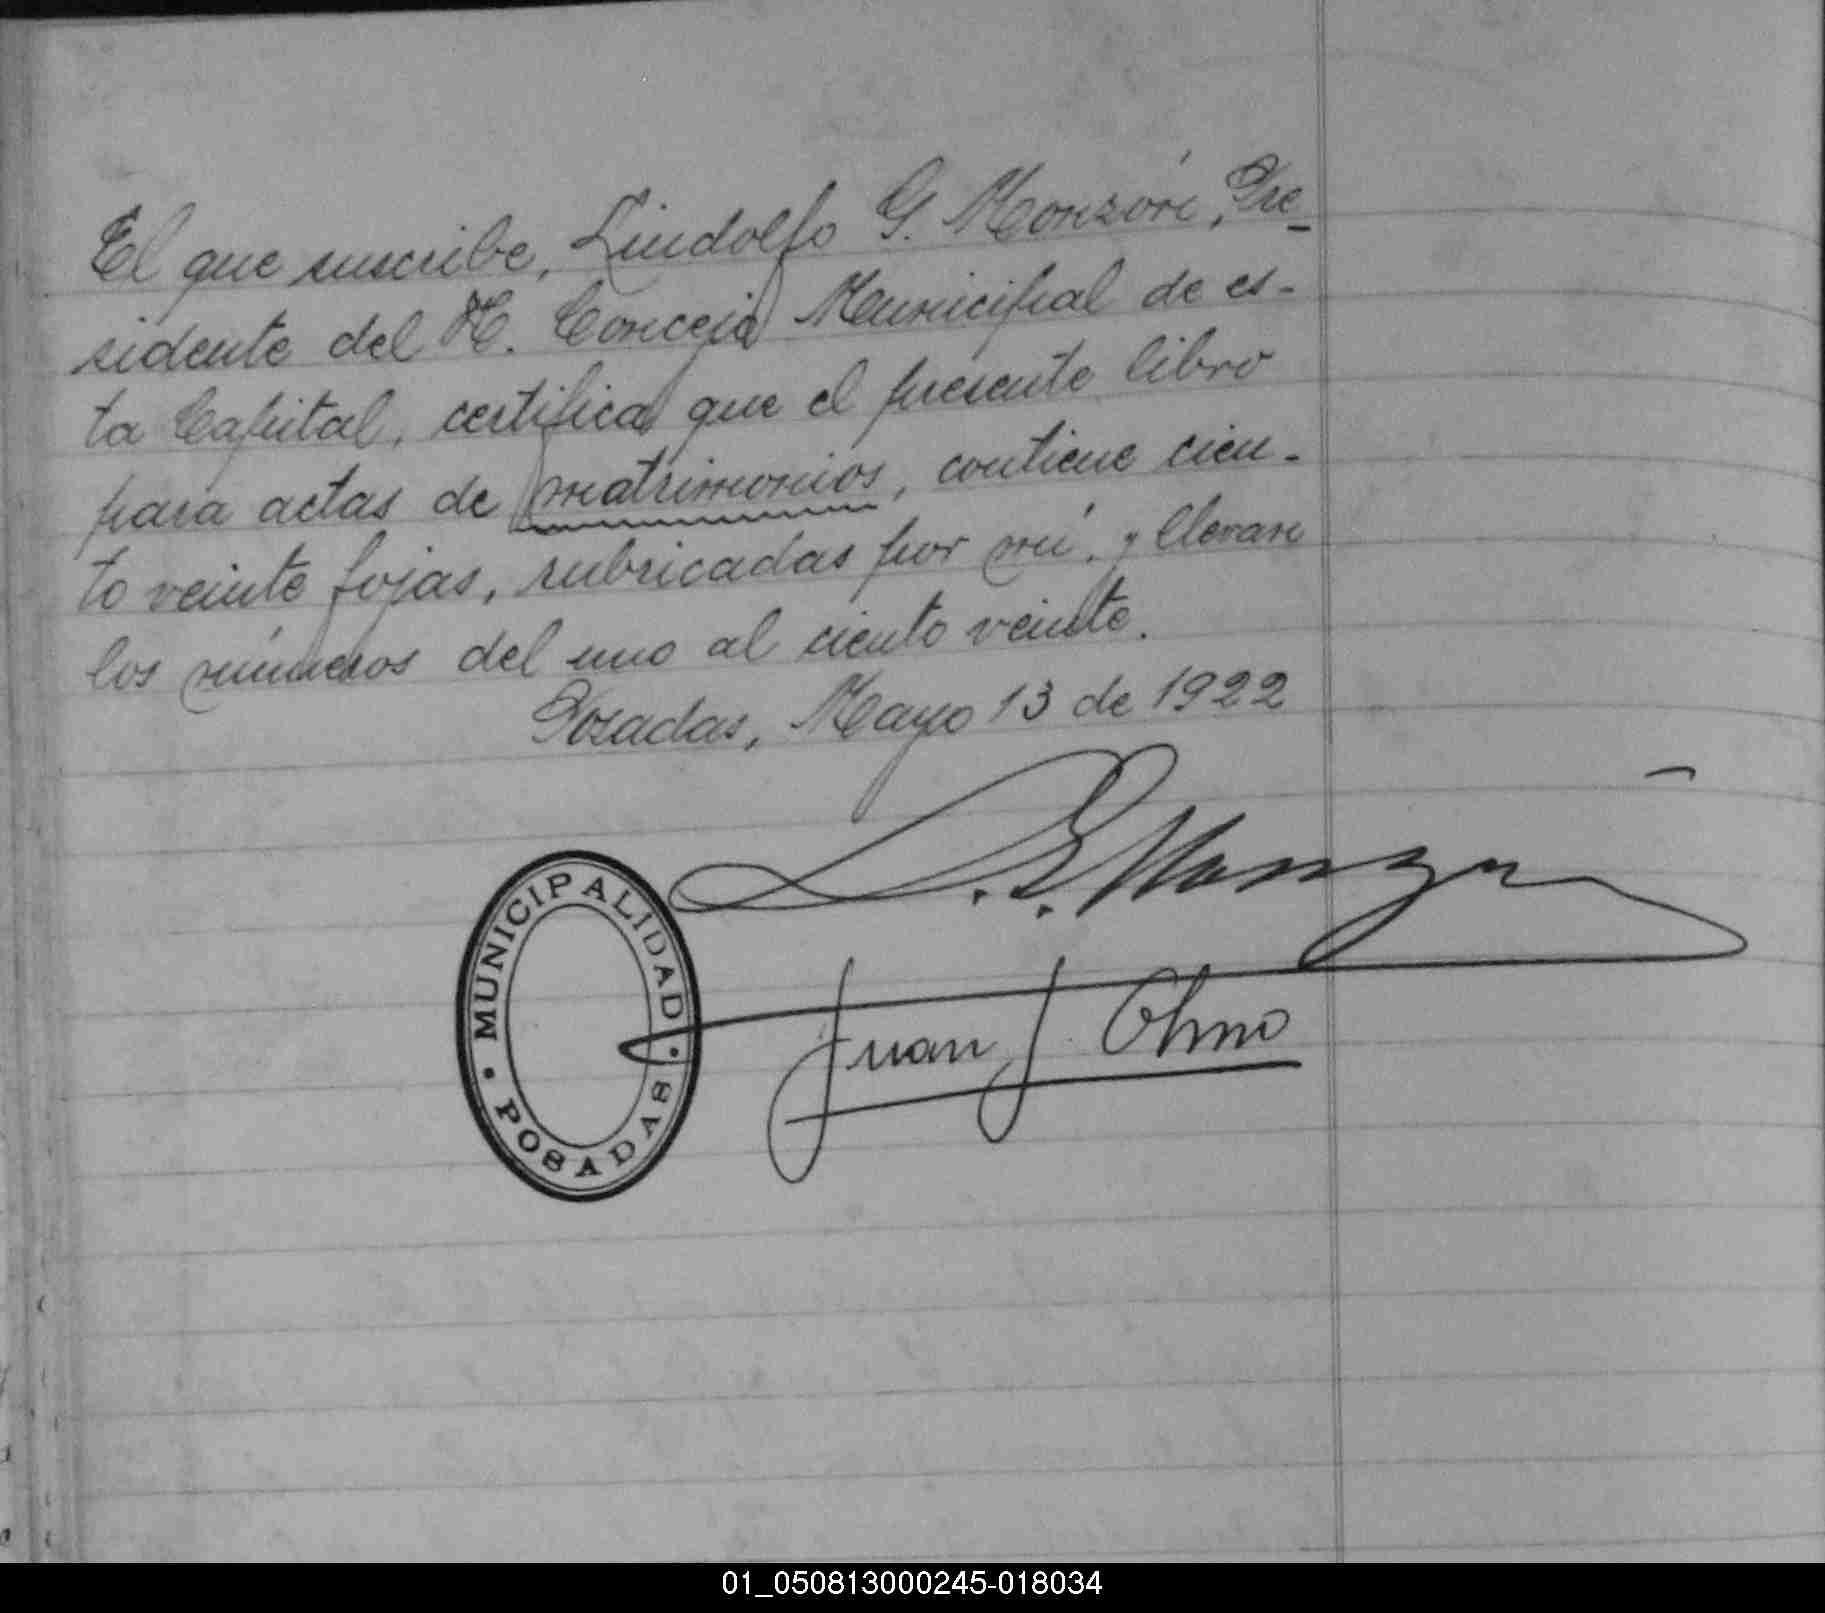 El que suscribe, Lindolfo G. Monzón, Pre-
sidente del H. Concejo Municipal de es-
ta Capital, certifica que el presente libro
para actas de matrimonios, contiene cien-
to veinte fojas, rubricadas por mí, y llevan
los números del uno al ciento veinte.
Posadas, Mayo 13 de 1922
L. G. Monzón
MUNICIPALIDAD
POSADAS
Juan J. Olmo
01_050813000245-018034